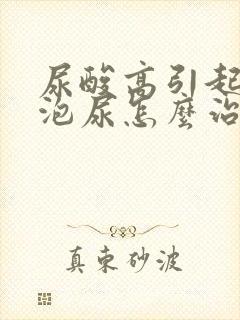 尿酸高引起
泡尿怎麼治
真東砂波